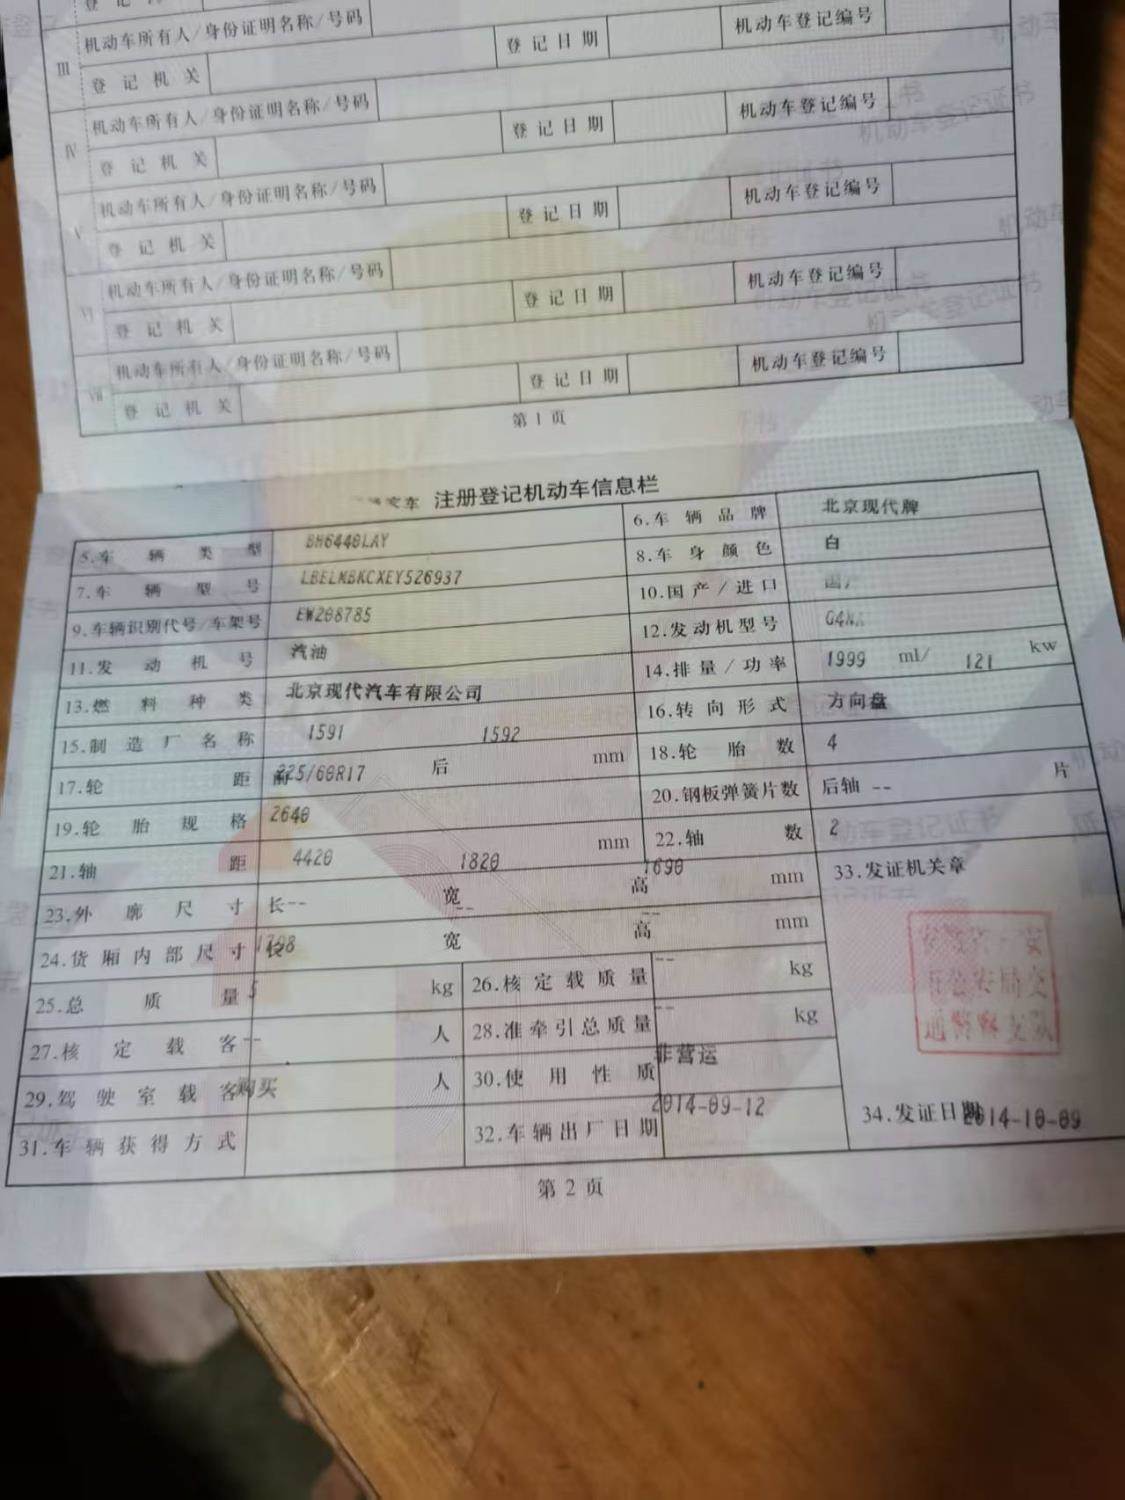 登记
机动车所有人/身份证明名称/号码
III 登记机关 登记日期 机动车登记编号
机动车所有人/身份证明名称/号码
IV 登记机关 登记日期 机动车登记编号
机动车所有人/身份证明名称/号码
V 登记机关 登记日期 机动车登记编号
机动车所有人/身份证明名称/号码
VI 登记机关 登记日期 机动车登记编号
机动车所有人/身份证明名称/号码
VII 登记机关 登记日期 机动车登记编号
第1页
注册登记机动车信息栏
5.车辆类型 6.车辆品牌 北京现代牌
7.车辆型号 BH6440LAY 8.车身颜色 白
9.车辆识别代号/车架号 LBELMBKCXEY526937 10.国产/进口
11.发动机号 EW208785 12.发动机型号
13.燃料种类 汽油 14.排量/功率 1999 ml/ 121 kw
15.制造厂名称 北京现代汽车有限公司 16.转向形式 方向盘
17.轮距 前 1591 后 1592 mm 18.轮胎数 4
19.轮胎规格 225/60R17 20.钢板弹簧片数 后轴 -- 片
21.轴距 2640 mm 22.轴数 2
23.外廓尺寸 长 4420 宽 1820 高 1690 mm 33.发证机关章
24.货厢内部尺寸 长 -- 宽 -- 高 -- mm
25.总质量 1798 kg 26.核定载质量 -- kg
27.核定载客 5 人 28.准牵引总质量 -- kg
29.驾驶室载客 -- 人 30.使用性质 非营运
31.车辆获得方式 购买 32.车辆出厂日期 2014-09-12 34.发证日期 2014-10-09
第2页